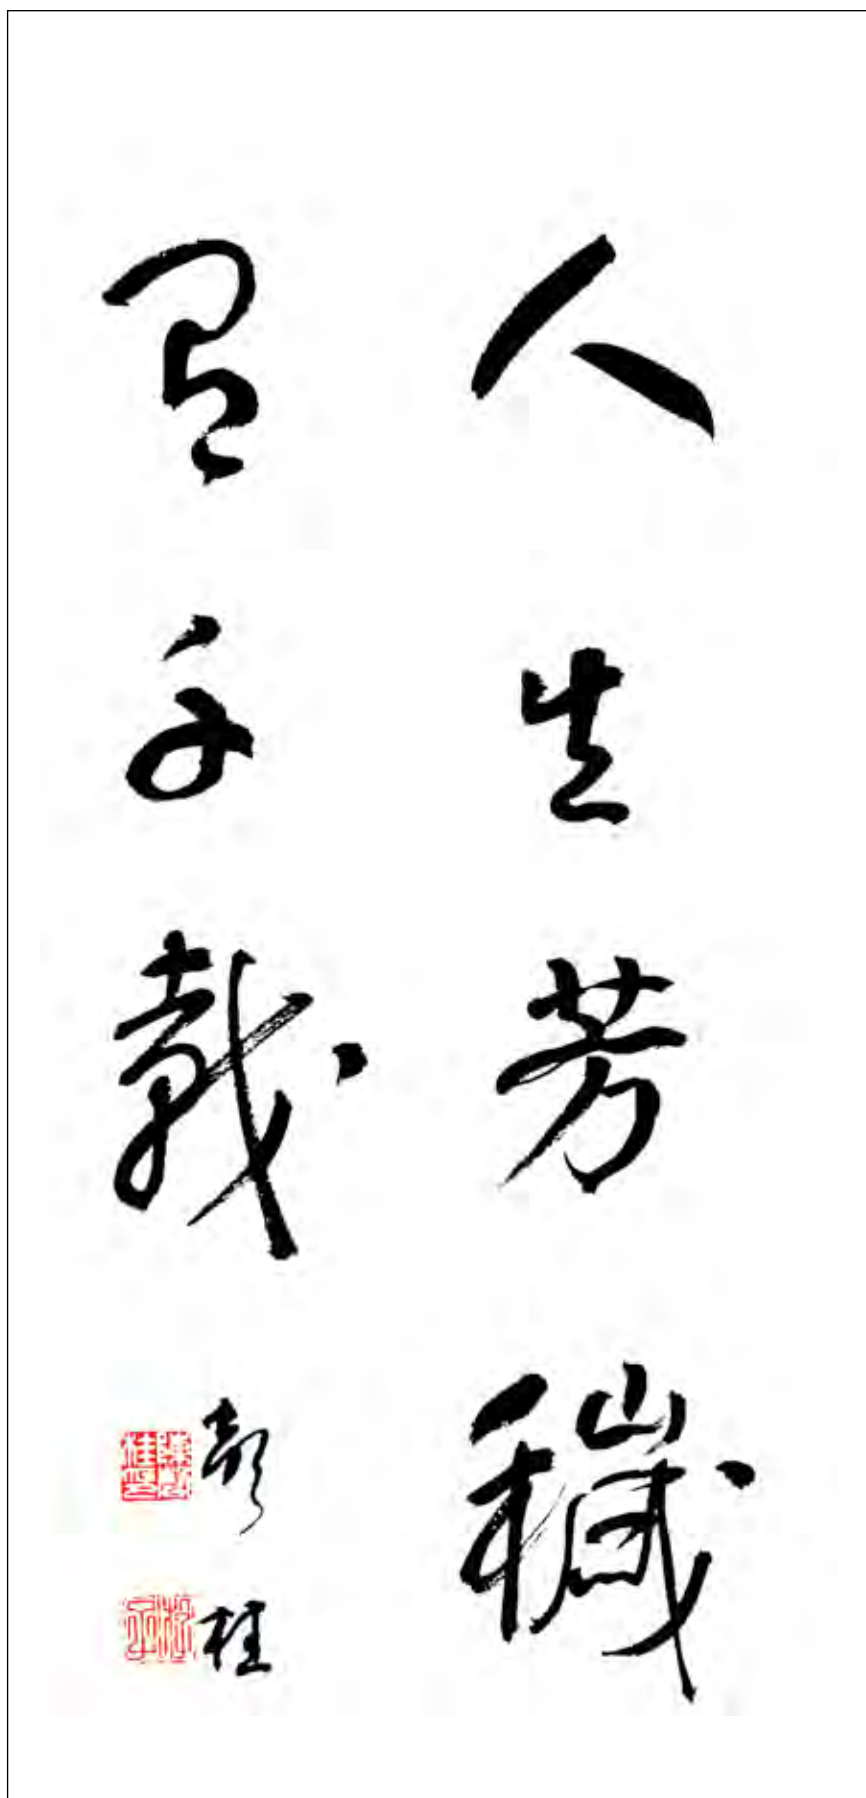 人生芳穢
有千載
桂